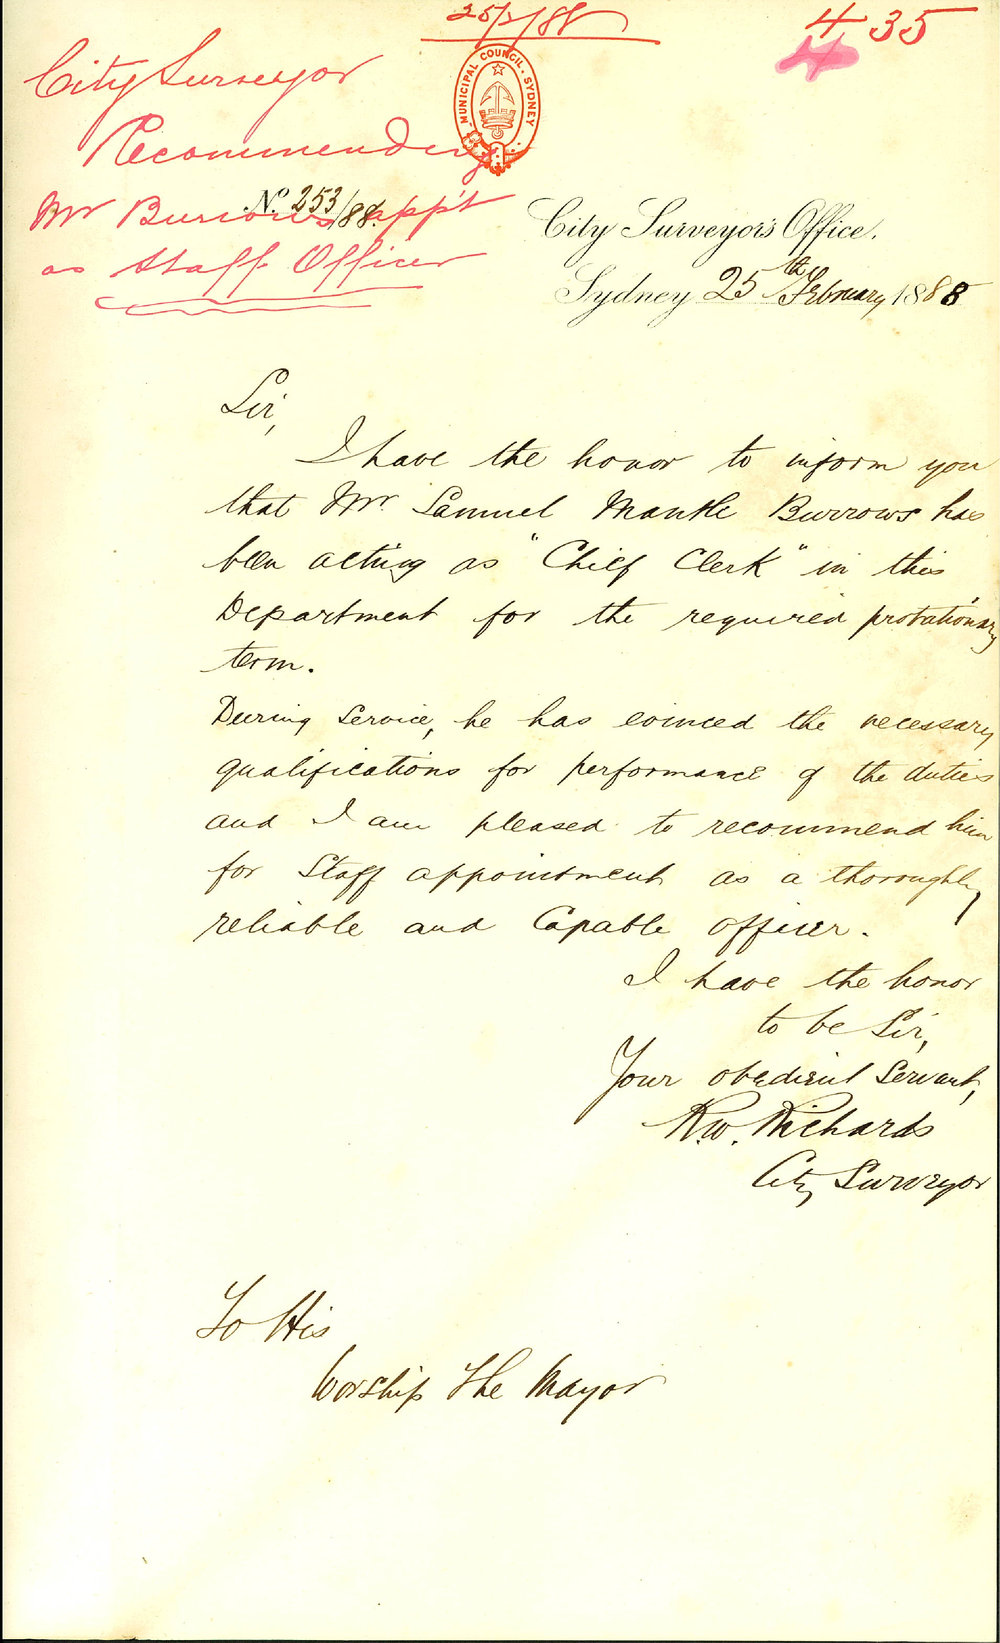 25/2/88
435
MUNICIPAL COUNCIL. SYDNEY
City Surveyor
Recommending
Mr Burrows app't
as Staff Officer
No. 253/88.
City Surveyor's Office.
Sydney 25th February 1888
Sir,
I have the honor to inform you
that Mr. Samuel Mantle Burrows has
been acting as "Chief Clerk" in this
Department for the required probationary
term.
During service, he has evinced the necessary
qualifications for performance of the duties
and I am pleased to recommend him
for Staff appointment as a thoroughly
reliable and Capable officer.
I have the honor
to be Sir,
Your obedient Servant,
R.W. Richards
City Surveyor
To His
Worship The Mayor